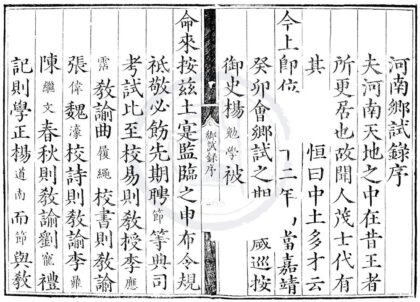 河南鄉試錄序
夫河南天地之中在昔王者
所更居也故聞人茂士代有
其 恒曰中土多才云
今上卽位 二年 當嘉靖
癸卯會鄉試之期 巡按
御史楊勉學被
鄉試錄序
命來按茲土寔監臨之申布令規
祗敬必飭先期聘節等典司
考試比至校易則教授李應
教諭曲履繩校書則教諭
張偉魏濠校詩則教諭李
陳繼文春秋則教諭劉寵禮
記則學正楊道南而節與教